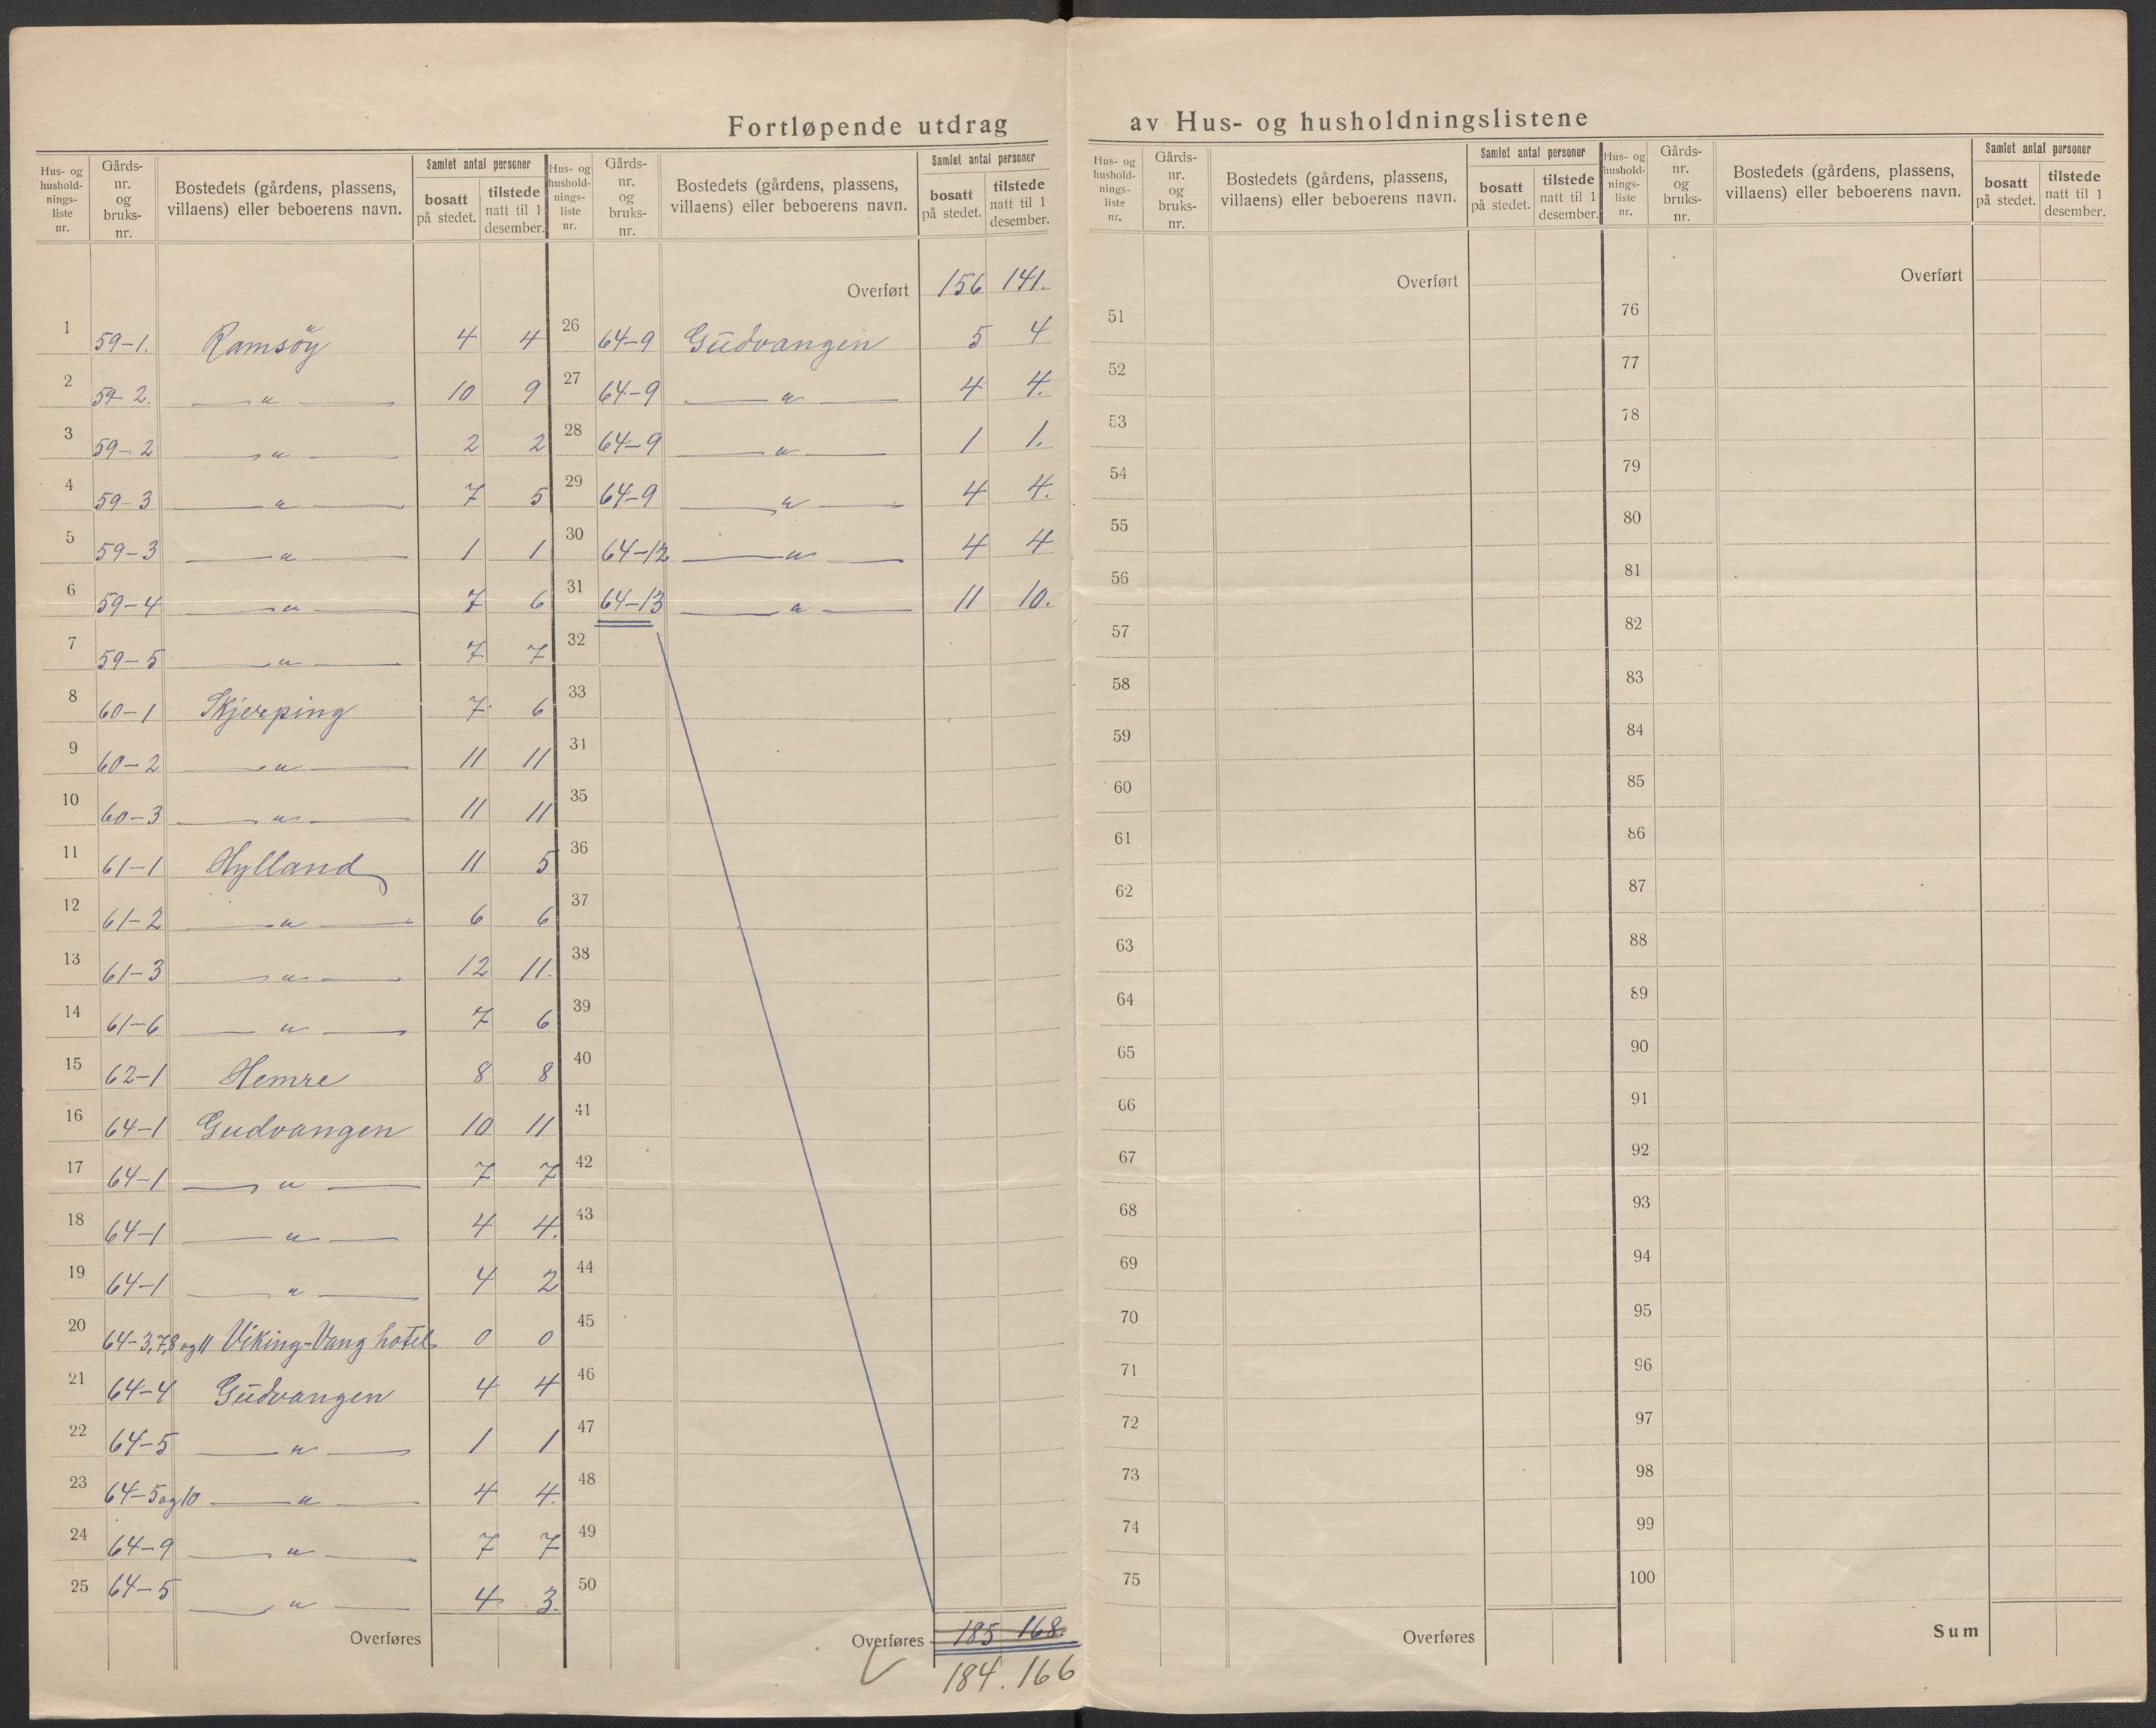 Fortløpende utdrag av Hus- og husholdningslistene
Hus- og hushold-nings-liste nr. | Gårds-nr. og bruks-nr. | Bostedets (gårdens, plassens, villaens) eller beboerens navn. | Samlet antal personer | bosatt på stedet. | tilstede natt til 1 desember.
1 59-1. Ramsöy 4 4
2 59-2. —„— 10 9
3 59-2 —„— 2 2
4 59-3 —„— 7 5
5 59-3 —„— 1 1
6 59-4 —„— 7 6
7 59-5 —„— 7 7
8 60-1 Skjerping 7. 6
9 60-2 —„— 11 11
10 60-3 —„— 11 11
11 61-1 Hylland 11 5
12 61-2 —„— 6 6
13 61-3 —„— 12 11.
14 61-6 —„— 7 6
15 62-1 Hemre 8 8
16 64-1 Gudvangen 10 11
17 64-1 —„— 7 7
18 64-1 —„— 4 4.
19 64-1 —„— 4 2
20 64-3,7,8 og 11 Viking-Vang hotel 0 0
21 64-4 Gudvangen 4 4
22 64-5 —„— 1 1
23 64-5 og 10 —„— 4 4.
24 64-9 —„— 7 7
25 64-5 —„— 4 3.
Overføres
Hus- og hushold-nings-liste nr. | Gårds-nr. og bruks-nr. | Bostedets (gårdens, plassens, villaens) eller beboerens navn. | Samlet antal personer | bosatt på stedet. | tilstede natt til 1 desember.
Overført 156 141.
26 64-9 Gudvangen 5 4
27 64-9 —„— 4 4.
28 64-9 —„— 1 1.
29 64-9 —„— 4 4.
30 64-12 —„— 4 4
31 64-13 —„— 11 10.
32
33
31
35
36
37
38
39
40
41
42
43
44
45
46
47
48
49
50
Overføres 185 168.
184. 166
Hus- og hushold-nings-liste nr. | Gårds-nr. og bruks-nr. | Bostedets (gårdens, plassens, villaens) eller beboerens navn. | Samlet antal personer | bosatt på stedet. | tilstede natt til 1 desember.
Overført
51
52
53
54
55
56
57
58
59
60
61
62
63
64
65
66
67
68
69
70
71
72
73
74
75
Overføres
Hus- og hushold-nings-liste nr. | Gårds-nr. og bruks-nr. | Bostedets (gårdens, plassens, villaens) eller beboerens navn. | Samlet antal personer | bosatt på stedet. | tilstede natt til 1 desember.
Overført
76
77
78
79
80
81
82
83
84
85
86
87
88
89
90
91
92
93
94
95
96
97
98
99
100
Sum